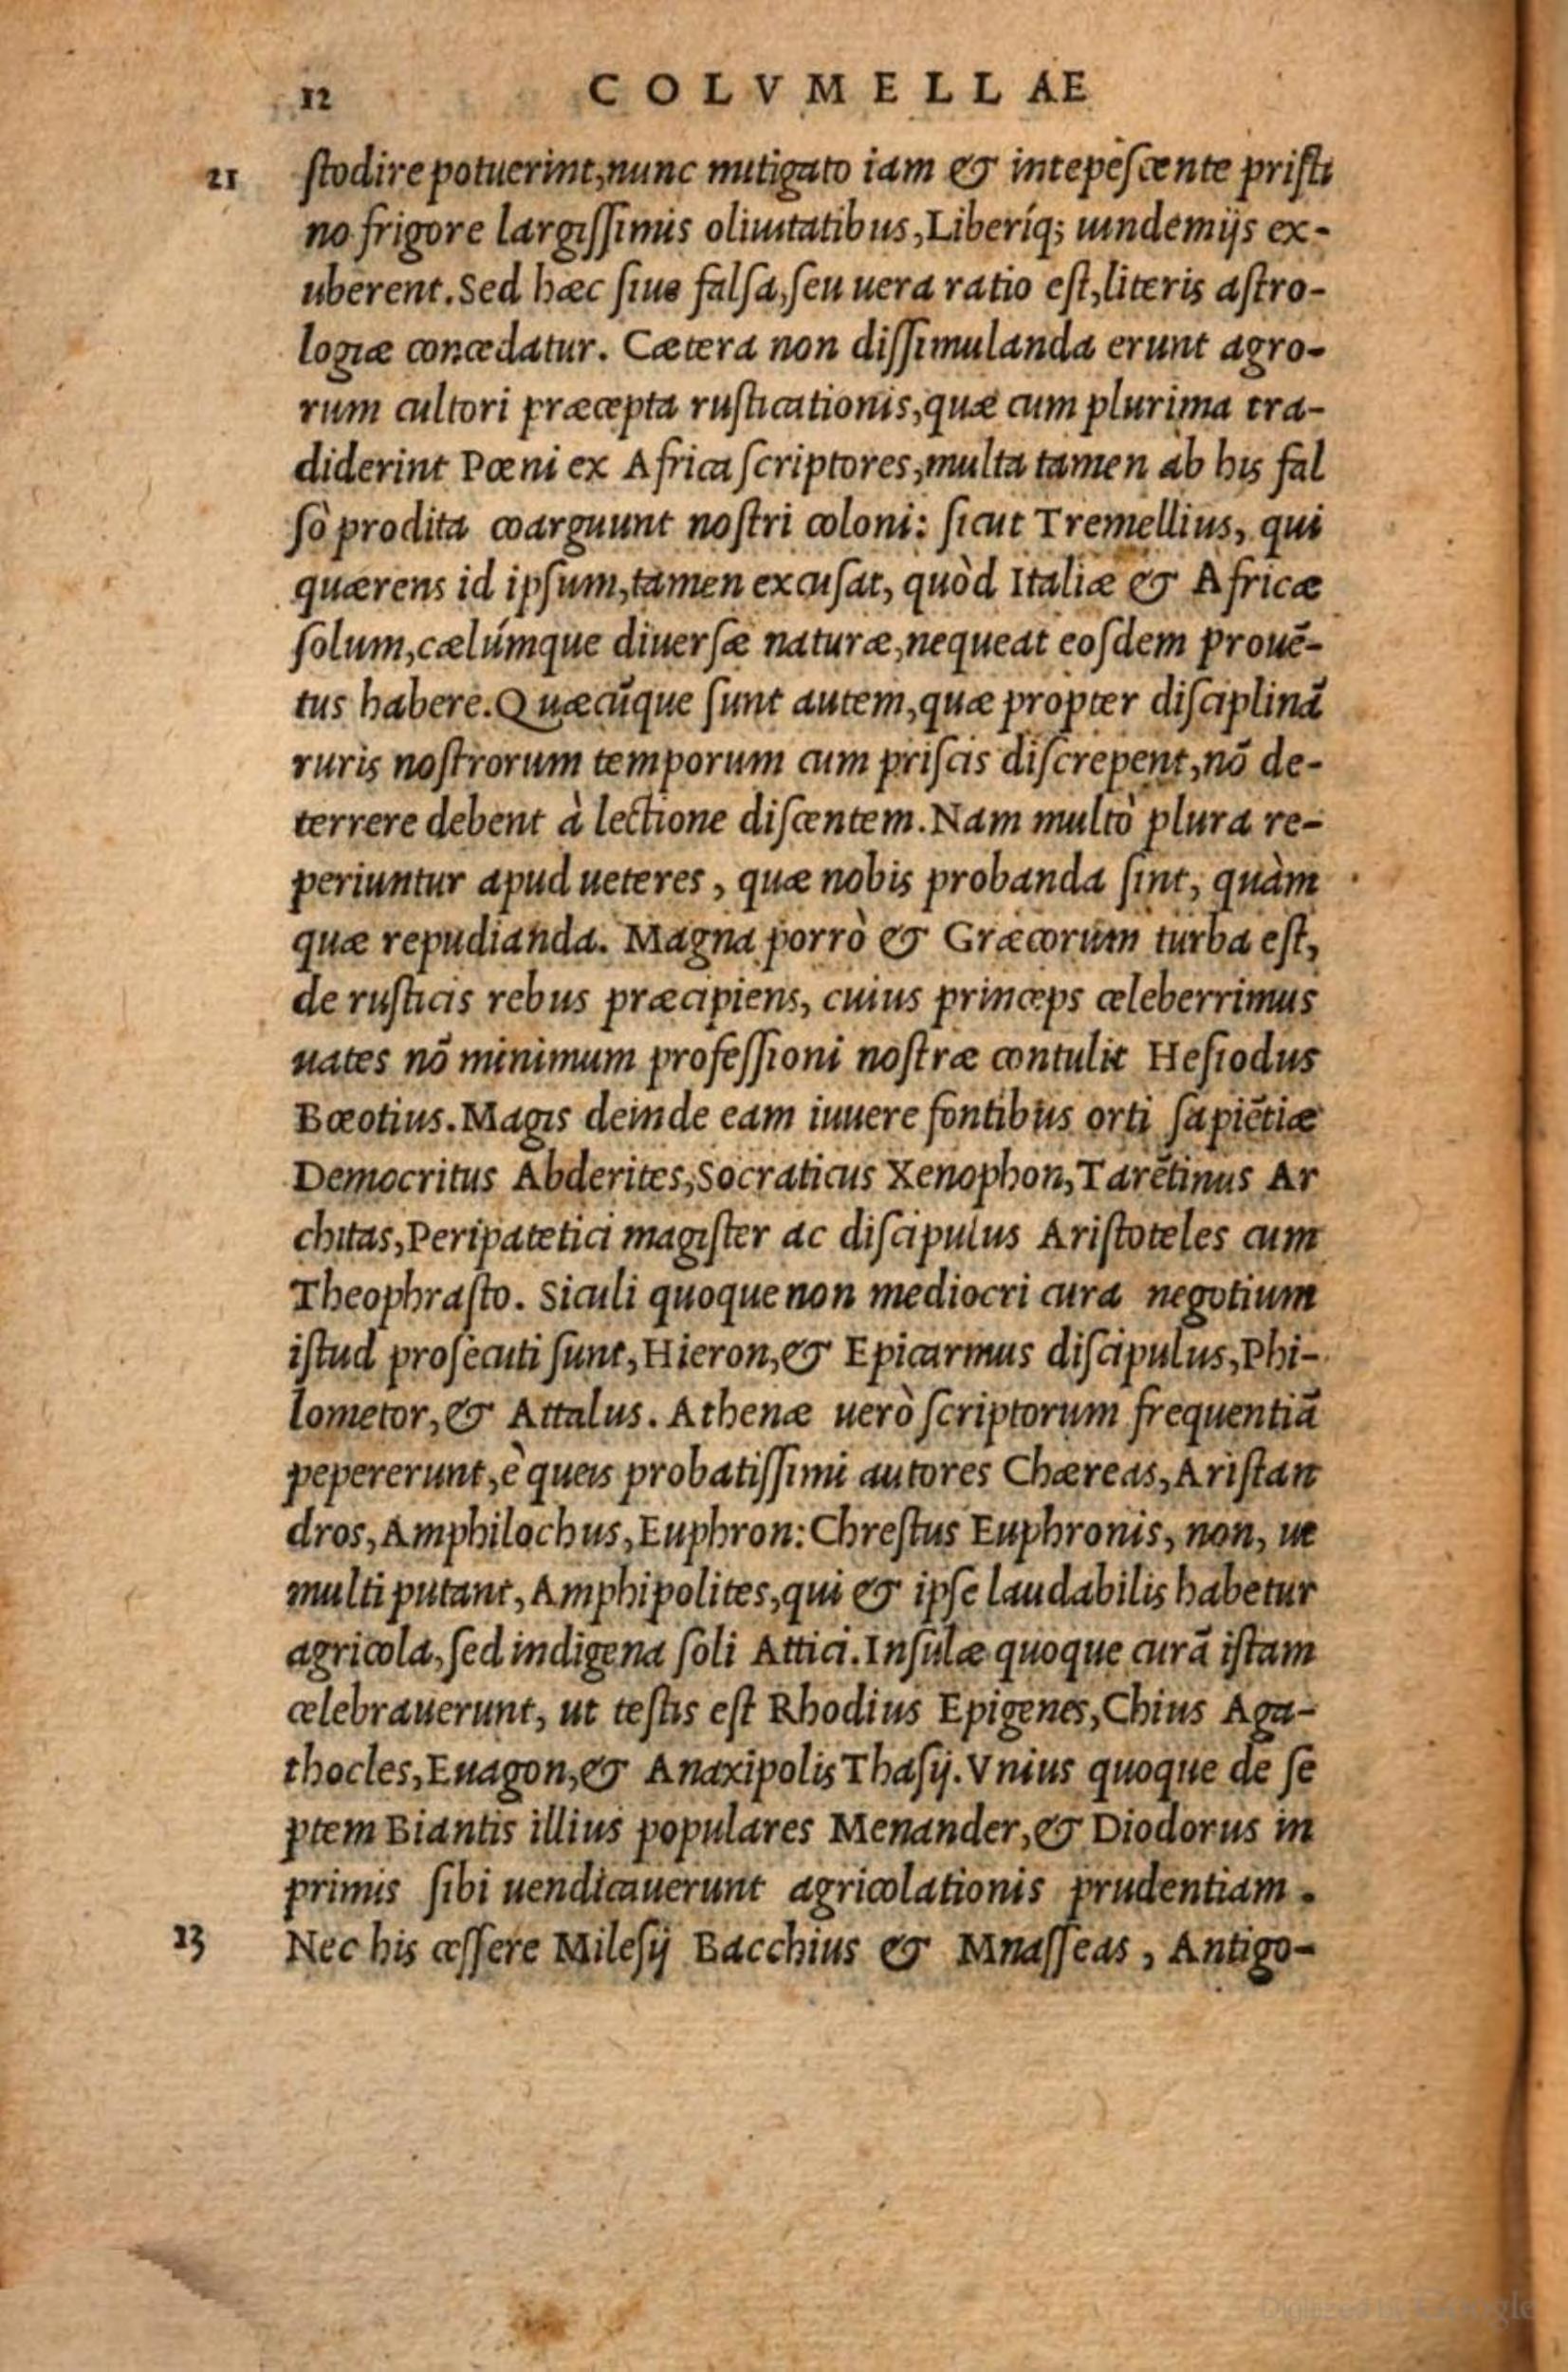 12 COLVMELLAE
21 ſtodire potuerint, nunc mitigato iam & intepeſcente priſti
no frigore largiſſimis oliuitatibus, Liberíq; uindemijs ex-
uberent. Sed hæc ſiue falſa, ſeu uera ratio eſt, literis aſtro-
logiæ concedatur. Cætera non diſſimulanda erunt agro-
rum cultori præcepta ruſticationis, quæ cum plurima tra-
diderint Pœni ex Africa ſcriptores, multa tamen ab his fal
ſò prodita coarguunt noſtri coloni: ſicut Tremellius, qui
quærens id ipſum, tamen excuſat, quòd Italiæ & Africæ
ſolum, cælúmque diuerſæ naturæ, nequeat eoſdem prouē-
tus habere. Quæcūque ſunt autem, quæ propter diſciplinā
ruris noſtrorum temporum cum priſcis diſcrepent, nō de-
terrere debent à lectione diſcentem. Nam multò plura re-
periuntur apud ueteres, quæ nobis probanda ſint, quàm
quæ repudianda. Magna porrò & Græcorum turba eſt,
de ruſticis rebus præcipiens, cuius princeps celeberrimus
uates nō minimum profeſſioni noſtræ contulit Heſiodus
Bœotius. Magis deinde eam iuuere fontibus orti ſapiētiæ
Democritus Abderites, Socraticus Xenophon, Tarētinus Ar
chitas, Peripatetici magiſter ac diſcipulus Ariſtoteles cum
Theophraſto. Siculi quoque non mediocri cura negotium
iſtud proſecuti ſunt, Hieron, & Epicarmus diſcipulus, Phi-
lometor, & Attalus. Athenæ uerò ſcriptorum frequentiā
pepererunt, è queis probatiſſimi autores Chæreas, Ariſtan
dros, Amphilochus, Euphron: Chreſtus Euphronis, non, ut
multi putant, Amphipolites, qui & ipſe laudabilis habetur
agricola, ſed indigena ſoli Attici. Inſulæ quoque curā iſtam
celebrauerunt, ut teſtis eſt Rhodius Epigenes, Chius Aga-
thocles, Euagon, & Anaxipolis Thaſij. Vnius quoque de ſe
ptem Biantis illius populares Menander, & Diodorus in
primis ſibi uendicauerunt agricolationis prudentiam.
23 Nec his ceſſere Mileſij Bacchius & Mnaſſeas, Antigo-
Digitized by Google